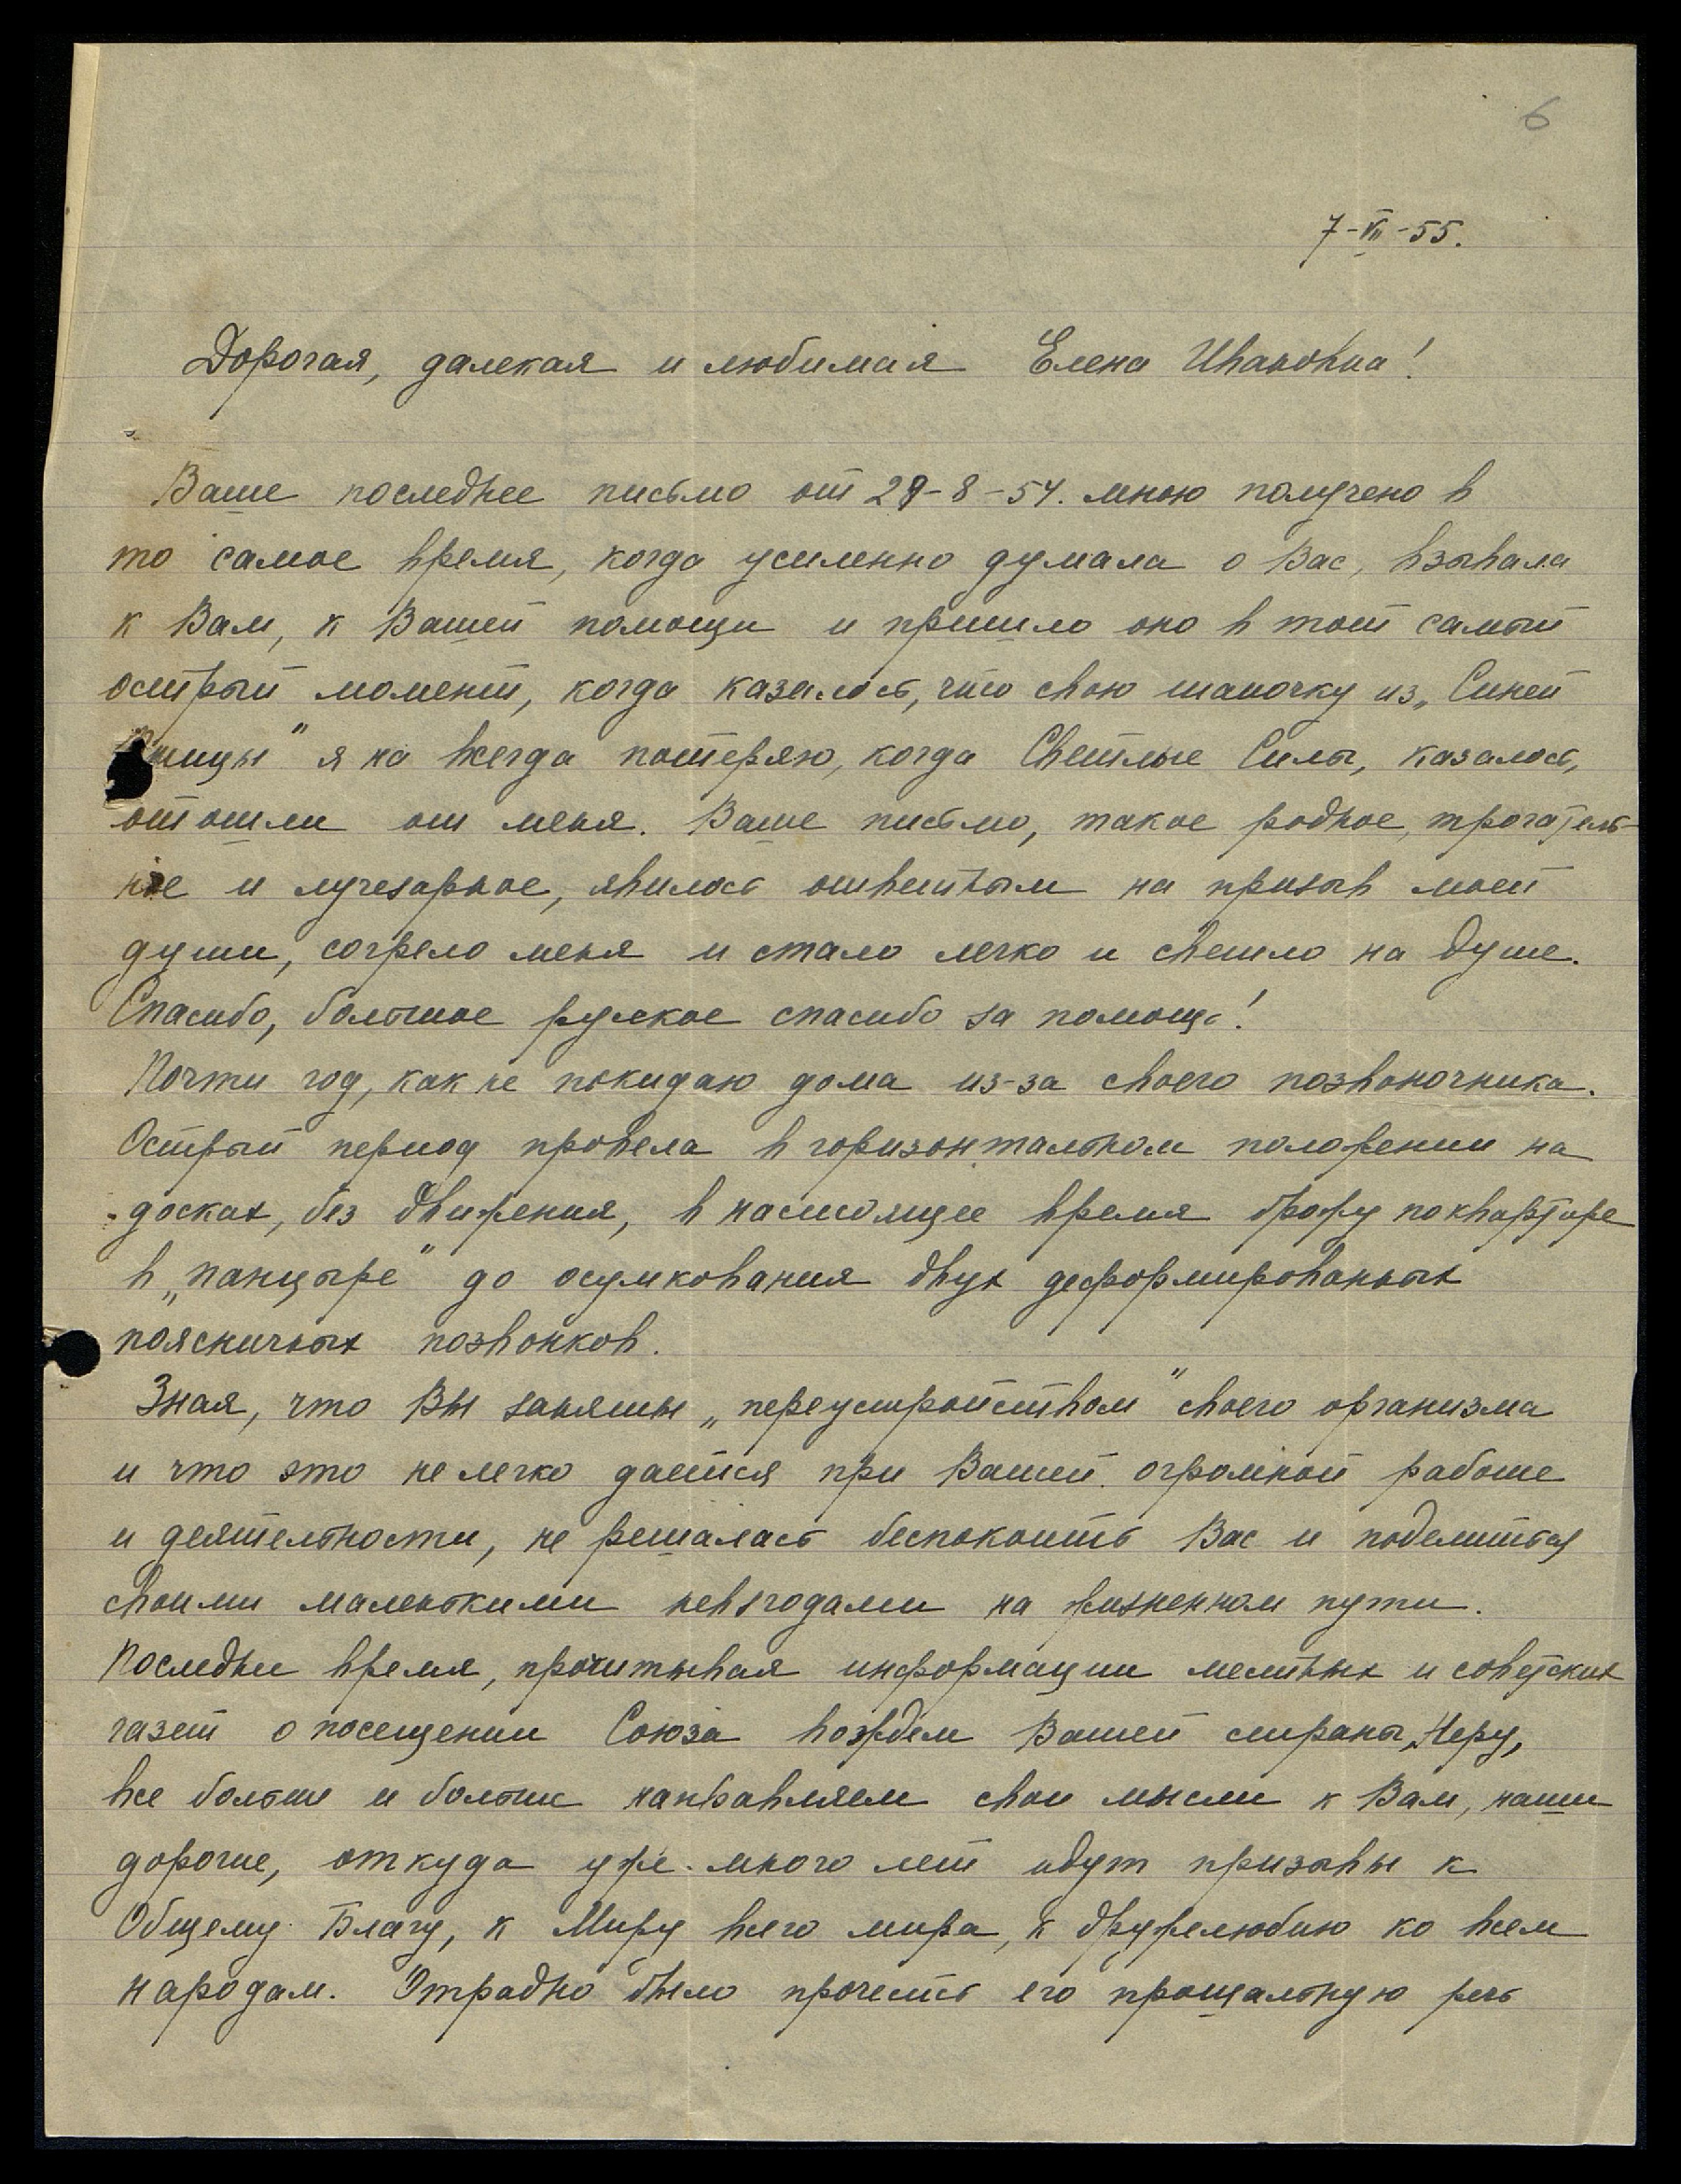 6
7-VII-55.
Дорогая, далекая и любимая Елена Ивановна!
Ваше последнее письмо от 29-8-54. мною получено в
то самое время, когда усиленно думала о Вас, взывала
к Вам, к Вашей помощи и пришло оно в тот самый
острый момент, когда казалось, что свою шапочку из „Синей
птицы" я на всегда потеряю, когда Светлые Силы, казалось,
отошли от меня. Ваше письмо, такое родное, трогатель-
ное и лучезарное, явилось ответом на призыв моей
души, согрело меня и стало легко и светло на душе.
Спасибо, большое русское спасибо за помощь!
Почти год, как не покидаю дома из-за своего позвоночника.
Острый период провела в горизонтальном положении на
досках, без движения, в настоящее время брожу по квартире
в „панцыре" до осумкования двух деформированных
поясничных позвонков.
Зная, что Вы заняты „переустройством" своего организма
и что это не легко дается при Вашей огромной работе
и деятельности, не решалась беспокоить Вас и поделиться
своими маленькими невзгодами на жизненном пути.
Последни время, прочитывая информации местных и советских
газет о посещении Союза вождем Вашей страны, Неру,
все больше и больше направляем свои мысли к Вам, наши
дорогие, откуда уже много лет идут призывы к
Общему Благу, к Миру всего мира, к дружелюбию ко всем
народам. Отрадно было прочесть его прощальную речь